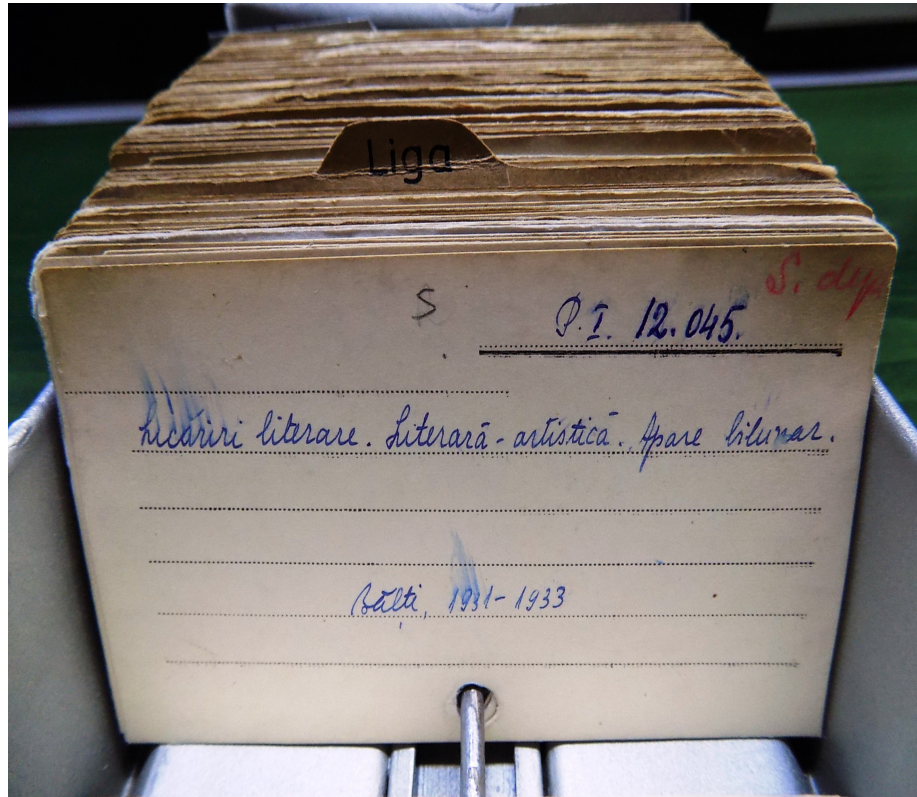 Liga
S. dep
S
P. I. 12.045.
Licăriri literare. Literară - artistică. Apare bilunar.
Bălți, 1931-1933